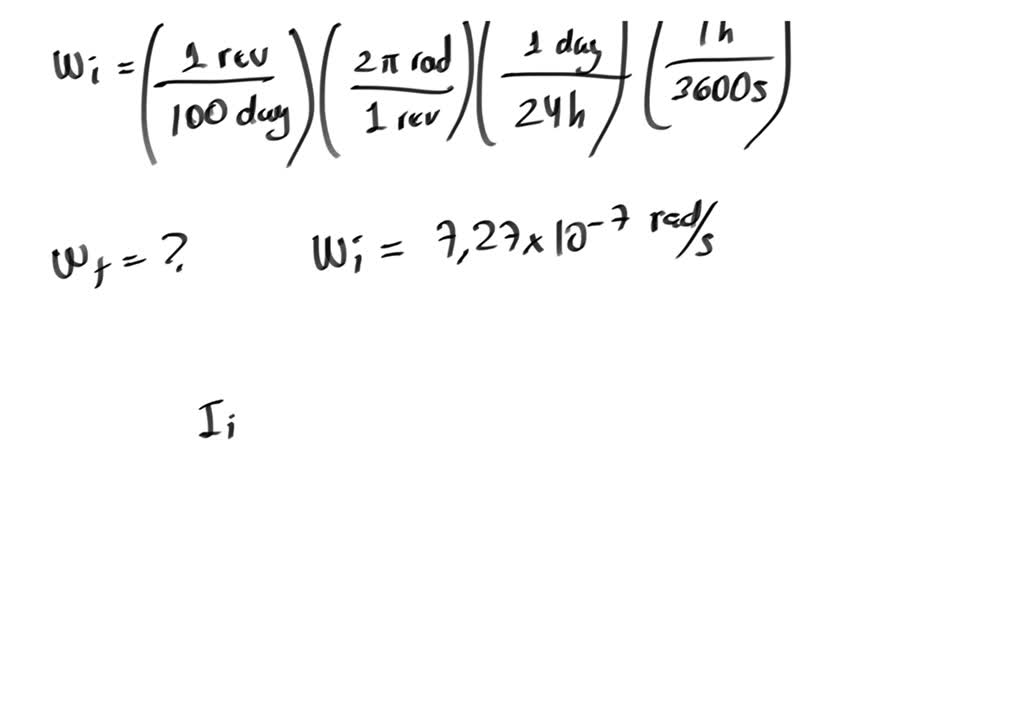 ωi = (1 rev / 100 day) (2π rad / 1 rev) (1 day / 24h) (1h / 3600s)
ωf = ? ωi = 7,27 × 10^-7 rad/s
Ii